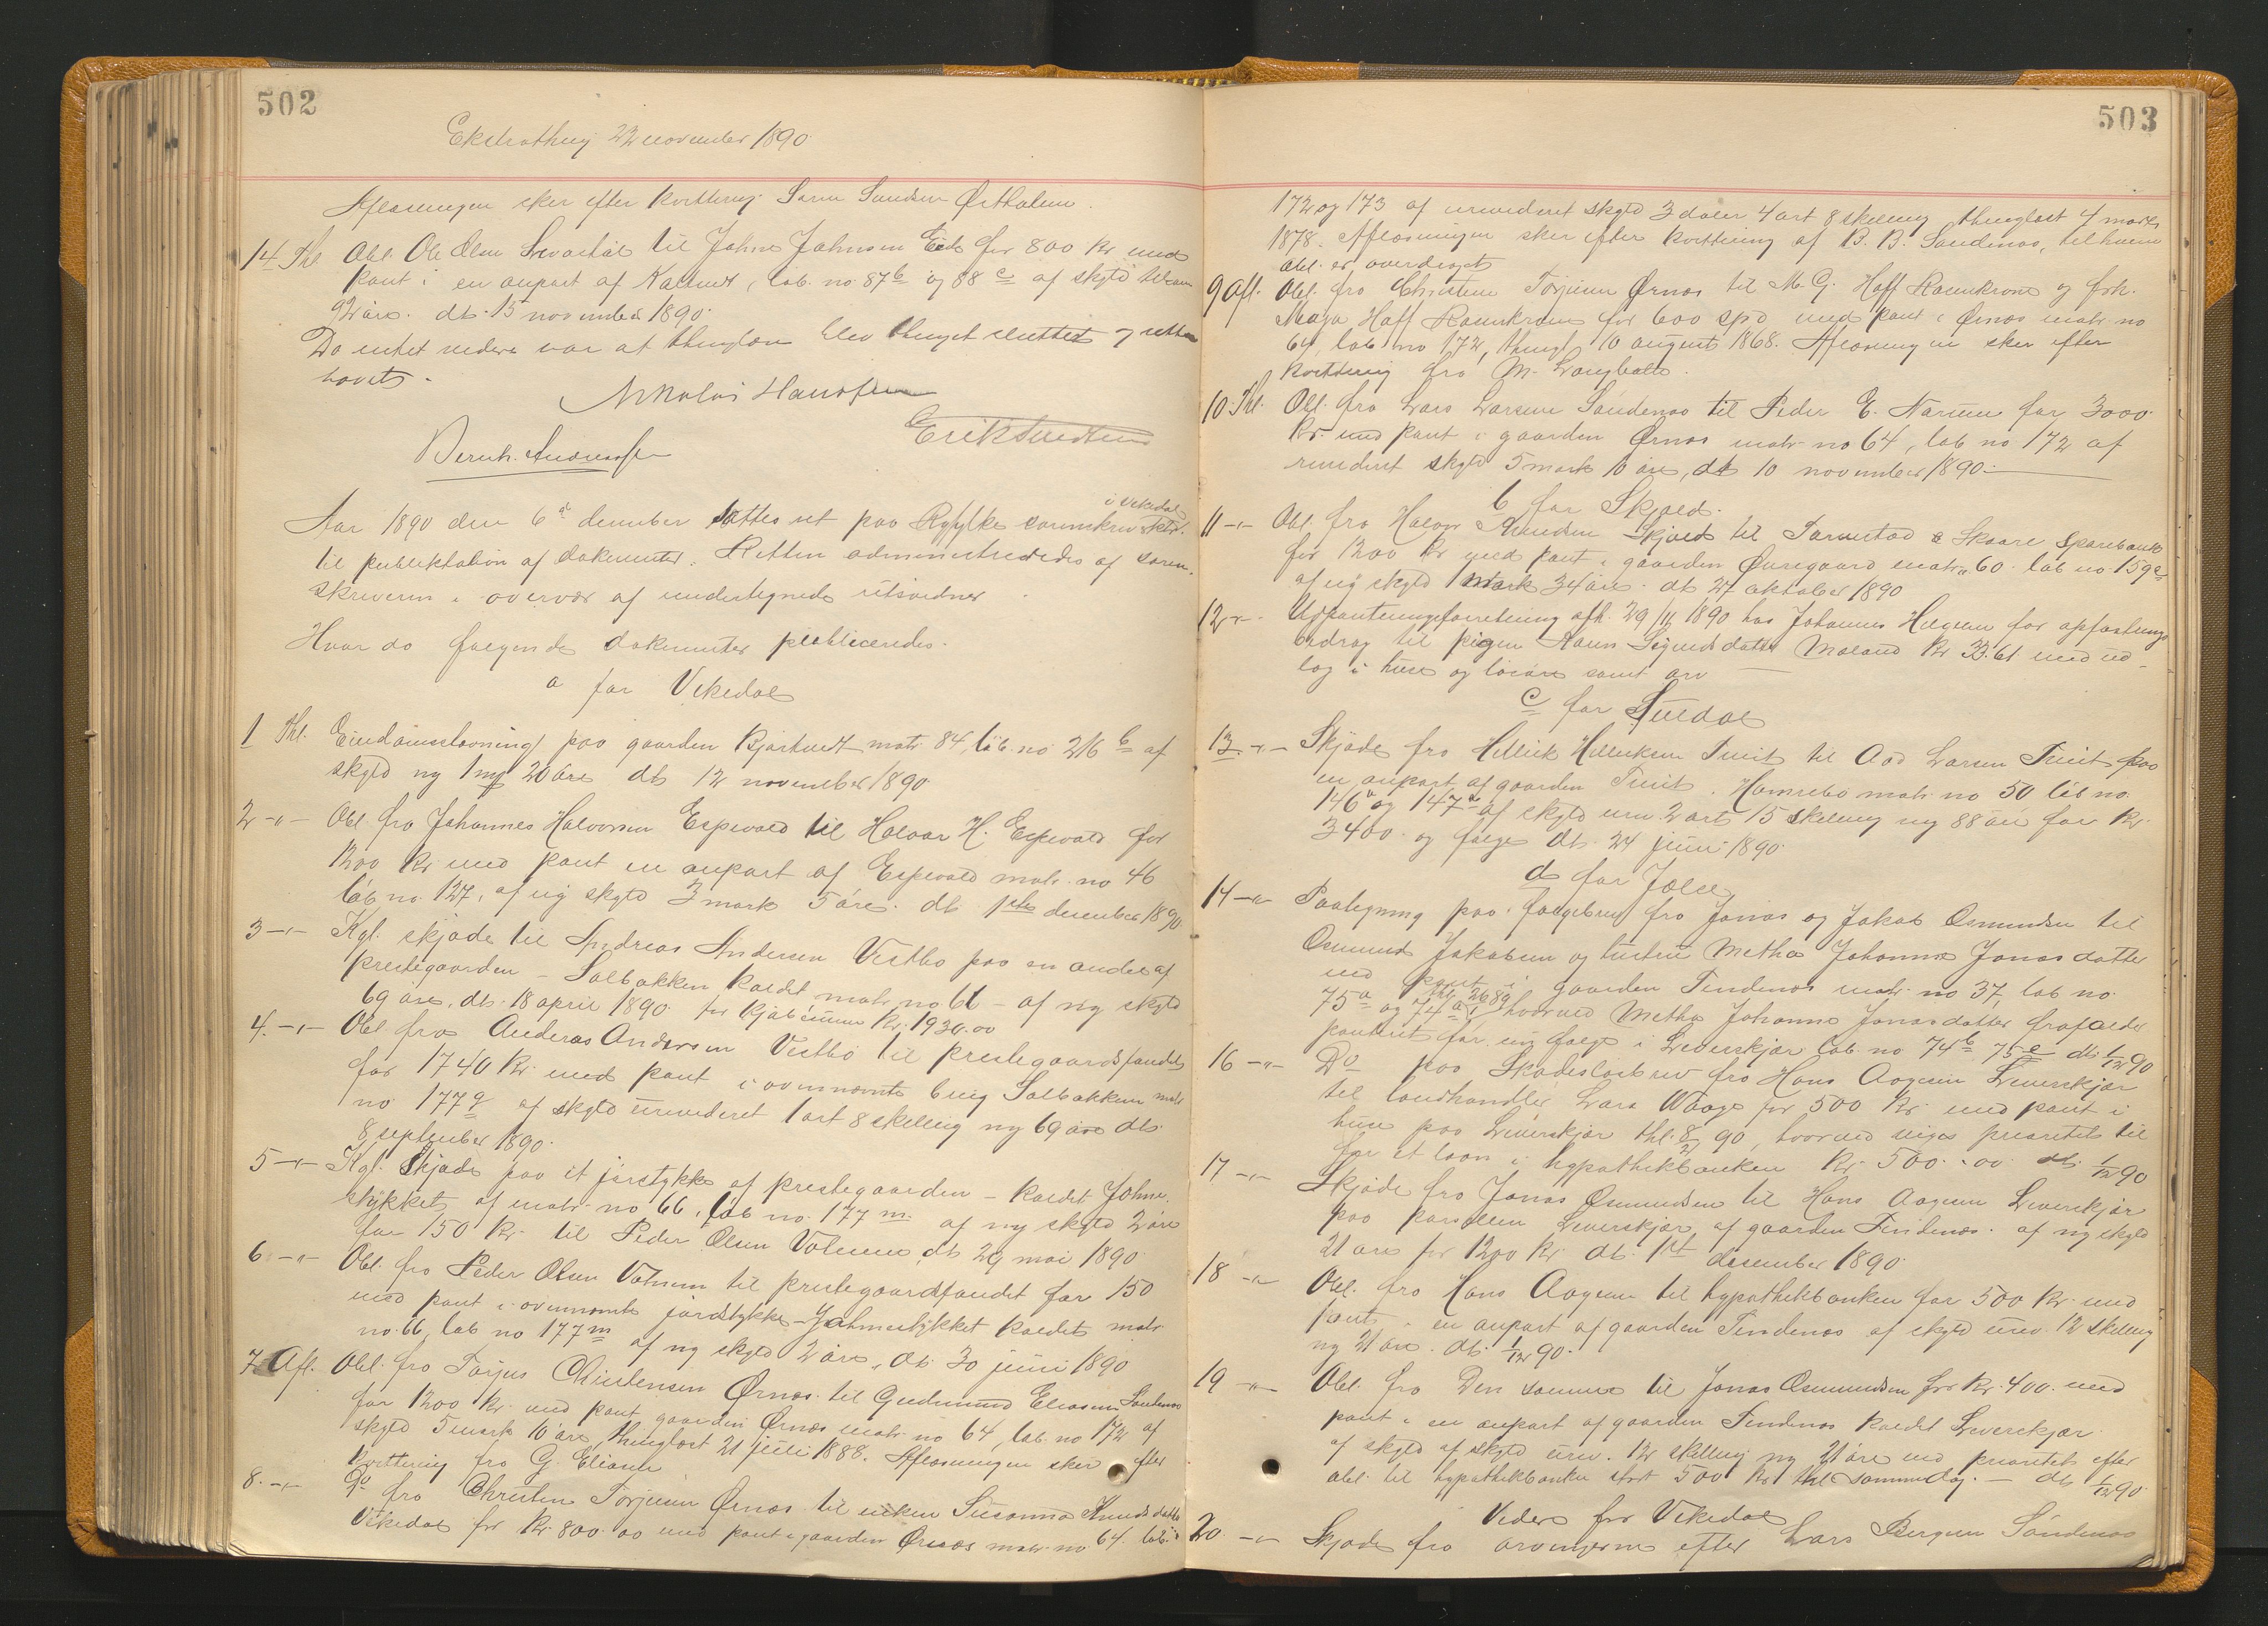 502
Ekstrathing 22 november 1890.
Aflæsningen sker efter kvittering
14 Thl Obl. Ole Olsen til Johns Johnsen Eide for 800 kr. med
pant i en anpart af løb. no 87b og 88c af skyld
92 øre. dt. 15 november 1890.
Da intet videre var at thinglæse blev thinget sluttet og retten
hævet.
Nikolai Hanssen
Erik
Bernh.
i Vikedal
Aar 1890 den 6te december sattes ret paa Ryfylke sorenskriv. ktr.
til publiktation af dokumenter. Retten administreredes af soren-
skriveren i overvær af undertegnede retsvidner
Hvor da følgende dokumenter publiceredes.
a for Vikedal
1 Thl. Eiendomsskjønning paa gaarden matr 84, løb. no 216b af
skyld ny 1 mk 20 øre dt 12 november 1890
2 -"- Obl. fra Johannes Halvorsen Espevold til Halvor H. Espevold for
1200 kr med pant en anpart af Espevold matr. no 46
løb no. 127, af ny skyld 3 mark 5 øre. dt 1ste december 1890
3 -"- Kgl. skjøde til Andreas Andersen Vestbø paa en andel af
prestegaarden - Solbakken kaldt matr. no 66 - af ny skyld
69 øre, dt. 18 april 1890 for kjøbesum kr. 1930.00
4. -"- Obl fra Anderas Andersen Vestbø til prestegaardsfondet
for 1740 kr. med pant i ovennævnte brug Solbakken matr
no 177q af skyld urevideret 1 ort 8 skilling ny 69 øre dt.
8 september 1890.
5 -"- Kgl. Skjøde paa et jorstykke af prestegaarden - kaldet Johne-
stykket af matr. no 66, løb no. 177m af ny skyld 2 øre
for 150 kr. til Peder Olsen dt 29 mai 1890
6 -"- Obl. fra Peder Olsen til prestegaardsfondet for 150
med pant i ovennævnte jordstykke - Johnestykket kaldet matr
no. 66, løb no 177m af ny skyld 2 øre, dt. 30 juni 1890
7 Afl. Obl. fra Torjus Christensen Ørnæs til Gudmund Eliasen Søndenaa
for 1200 kr med pant gaarden Ørnæs matr. no 64, løb. no 172 af
skyld 5 mark 10 øre, thinglæst 21 juli 1888. Aflæsningen sker efter
kvittering fra G. Eliasen
8. -"- Do fra Christen Torjusen Ørnæs til enken Susanna Knudsdatter
Vikedal for kr. 800.00 med pant i gaarden Ørnæs matr. no 64. løb. no
503
172 og 173 af urevideret skyld 3 daler 4 ort 8 skilling, thinglæst 4 marts
1878. Aflæsningen sker efter kvittering af B. B. Søndenaa, til hvem
obl. er overdraget
9 Afl. Obl. fra Christen Torjusen Ørnæs til M. G. Hoff Rosenkrone og frk.
Maja Hoff Rosenkrone for 600 spd med pant i Ørnæs matr no
64, løb no 172, thingl. 10 august 1868. Aflæsningen sker efter
kvittering fra M.
10. Thl. Obl. fra Lars Larsen Søndenaa til Peder E. for 3000
kr. med pant i gaarden Ørnæs matr no 64, løb no 172 af
revideret skyld 5 mark 10 øre, dt 10 november 1890
b for Skjold.
11 -"- Obl. fra Halvor Knudsen Skjold til Torvestad & Skaare Sparebank
for 1200 kr med pant i gaarden matr. 60. løb no. 159
af ny skyld 1 mark 34 øre. dt 27 oktober 1890
12 -"- Udpantningsforretning afh. 29/11 1890 hos Johannes Helgesen for opfostrings
bidrag til pigen Sigurdsdatter kr 33.61. med ud-
læg i huse og løsøre samt arv
c for Suldal
13. -"- Skjøde fra Hellik Helliksen Tveit til Aad Larsen Tveit paa
en anpart af gaarden Tveit i matr. no 50 løb no.
146a og 147a af skyld urev. 2 ort 15 skilling ny 88 øre for kr.
3400. og følge dt. 24 juni 1890.
d for Jælse
14 -"- Paategning paa følgebrev fra Jonas og Jakob Osmundsen til
Osmund Jakobsen og hustru Metha Johanna Jonasdatter
med pant i gaarden Tindenes matr. no 37, løb no
75a og 74a, hvorved Metha Johanna Jonasdatter frafalder
panteret for sin følge i Leverskjær løb. no 74b 75e dt. 1/12 90
16 -"- Do paa Skadesløsbrev fra Hans Aagesen Leverskjær
til landhandler Lars Waage for 500 kr. med pant i
huse paa Leverskjær thl. 8/2 90, hvorved viges prioritet til
for et laan i hypothekbanken kr. 500.00 dt. 1/12 90
17 -"- Skjøde fra Jonas Osmundsen til Hans Aagesen Leverskjær
paa parsellen Leverskjær af gaarden Tindenes. af ny skyld
21 øre for 1200 kr. dt. 1st desember 1890.
18 -"- Obl. fra Hans Aagesen til hypothekbanken for 500 kr. med
pant i en anpart af gaarden Tindenes af skyld urev. 12 skilling
ny 21 øre. dt. 1/12 90.
19 -"- Obl. fra Den samme til Jonas Osmundsen for kr. 400. med
pant i en anpart af gaarden Tindenes kaldet Leverskjær
af skyld af skyld urev. 12 skilling ny 21 øre med prioritet efter
obl. til hypothekbanken stort 500 kr. thl samme dag. - dt 1/12 90.
Videre for Vikedal
20. -"- Skjøde fra arvingerne efter Lars Bergesen Søndenaa